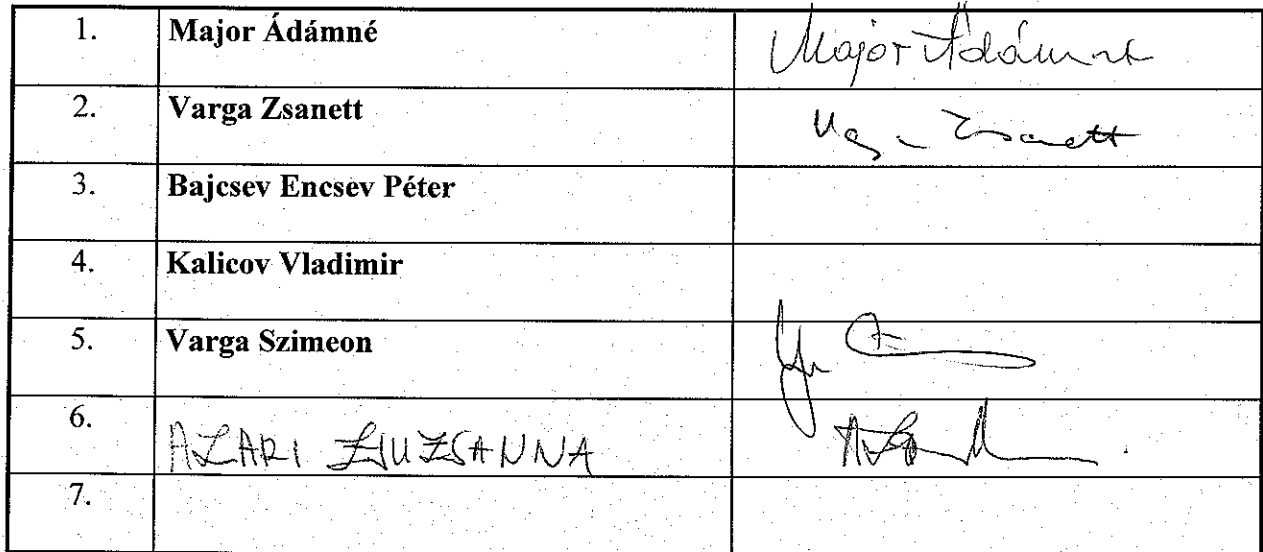 1. Major Ádámné Major Ádámné
2. Varga Zsanett Zsanett
3. Bajcsev Encsev Péter
4. Kalicov Vladimir
5. Varga Szimeon
6. AZARI ZSUZSANNA
7.